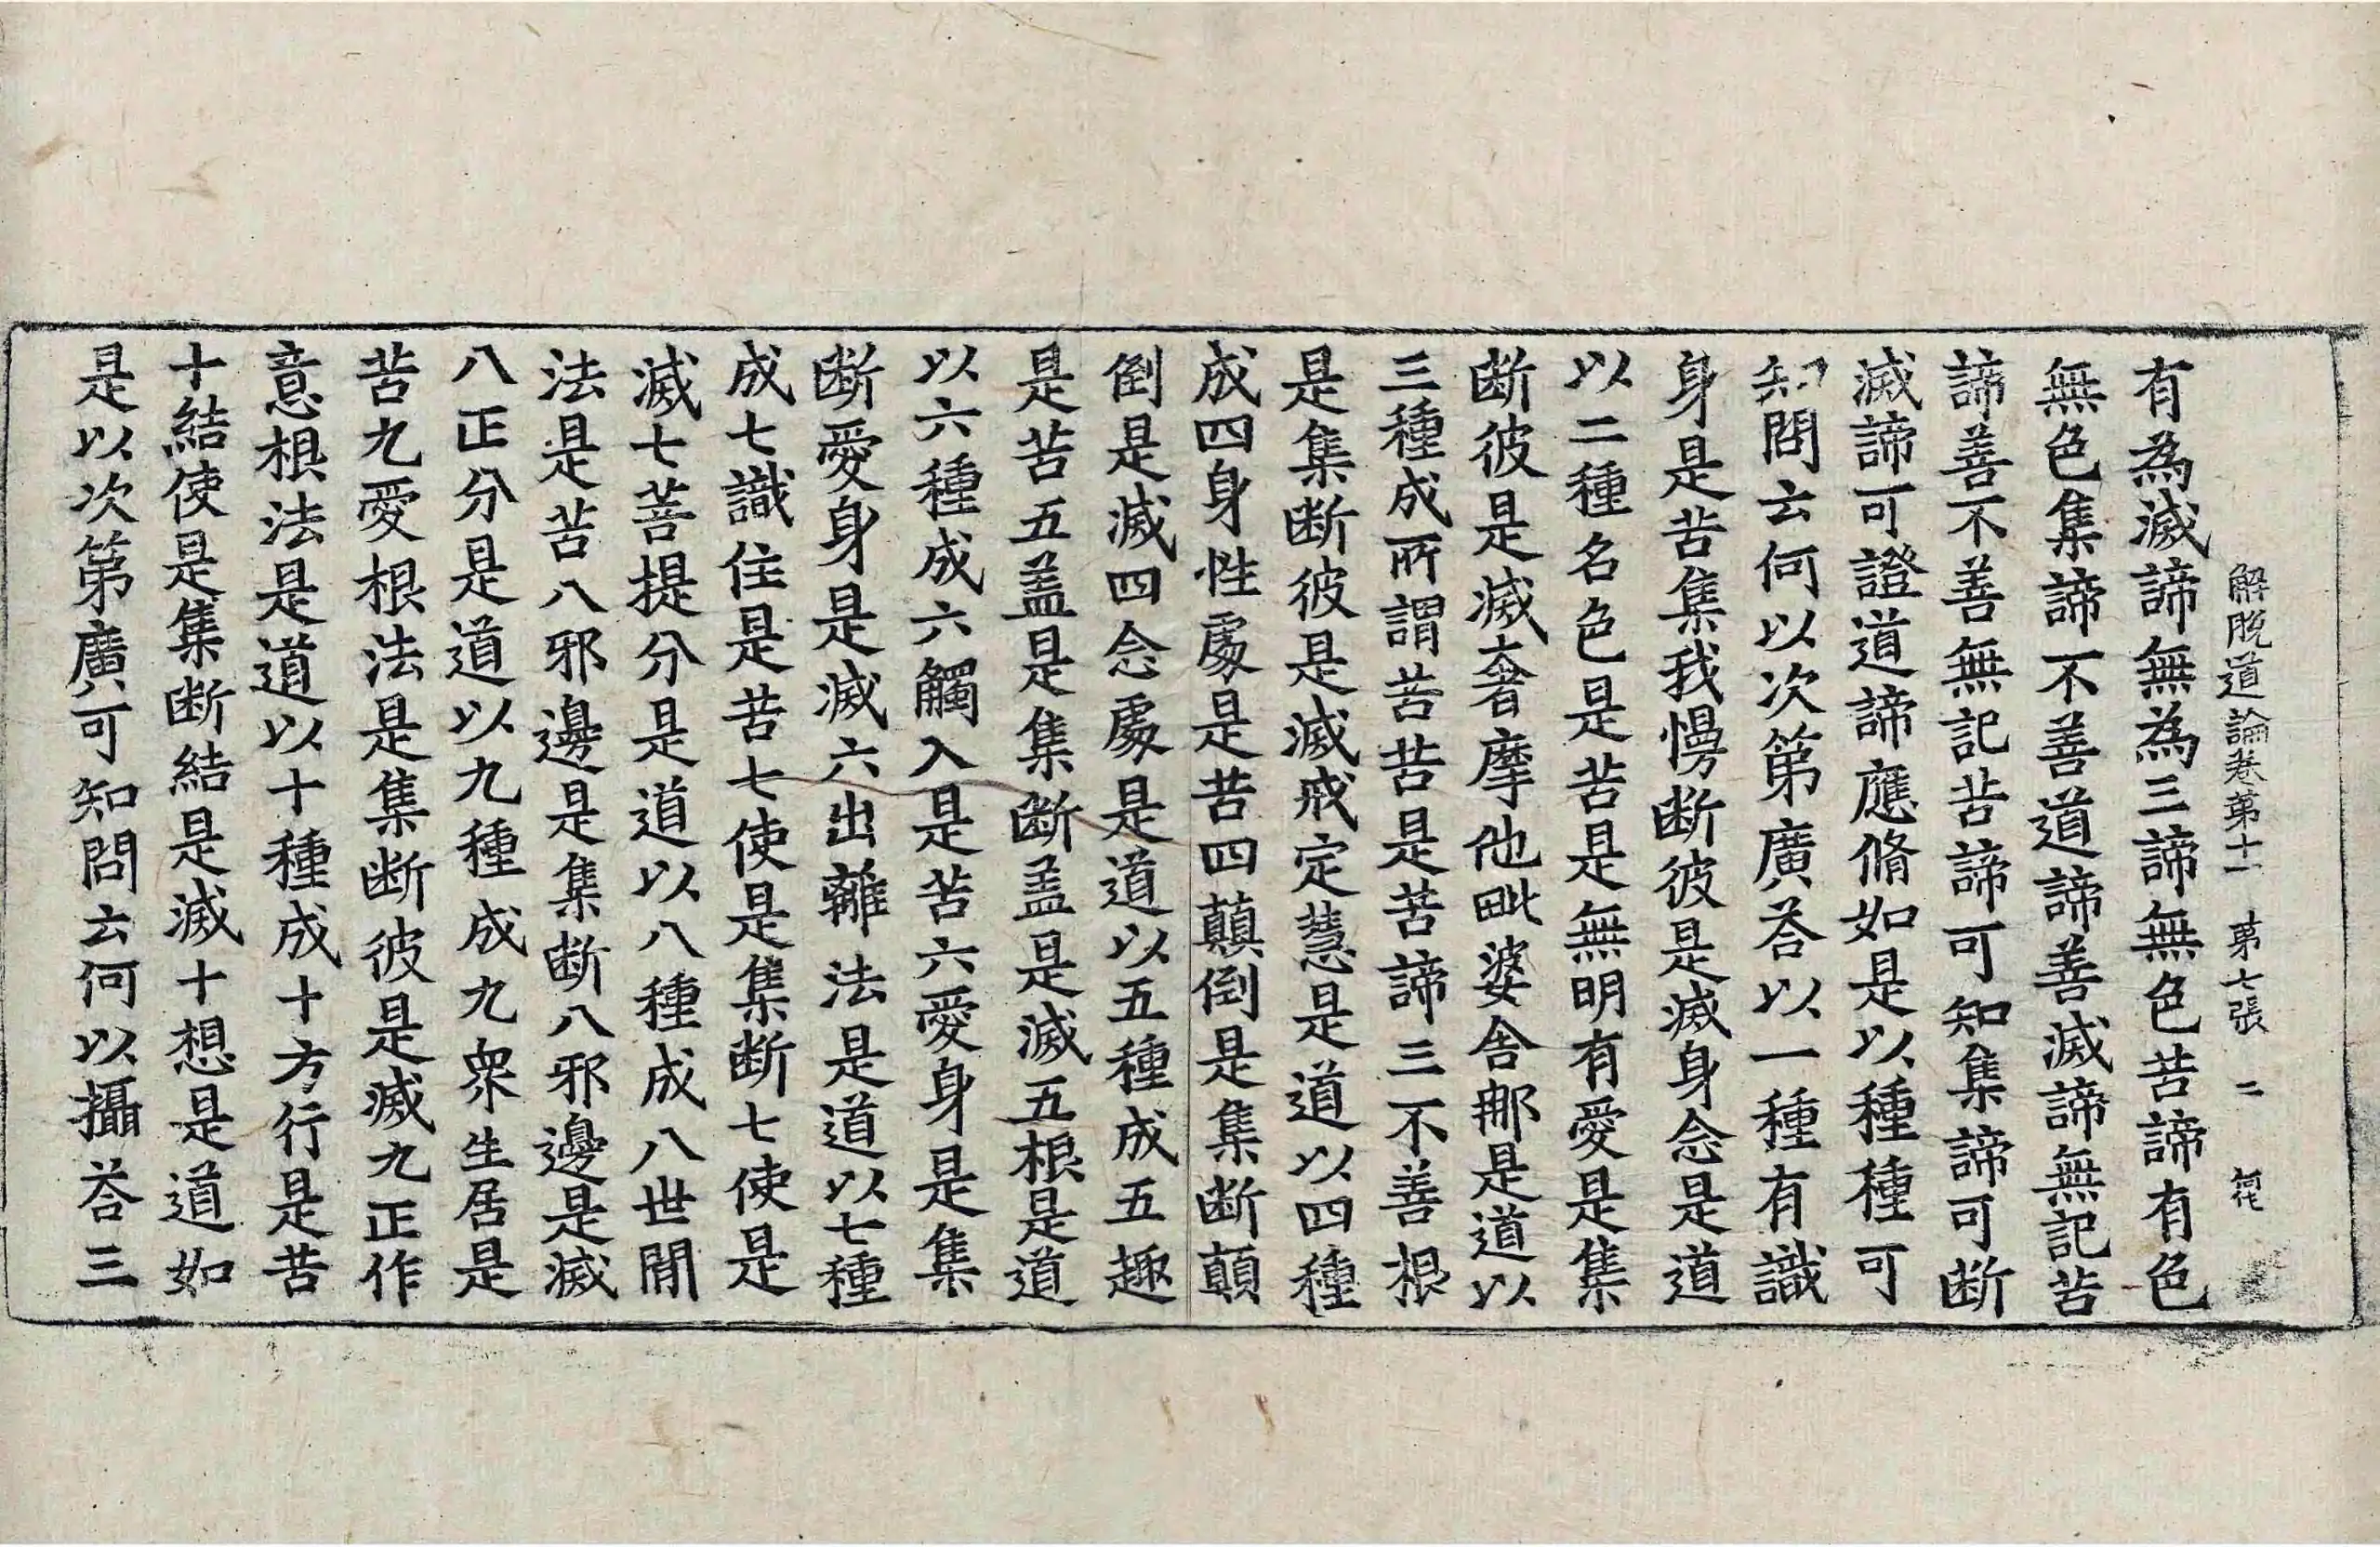 解脫道論卷第十一 第七張 二
有為滅諦無為三諦無色苦諦有色
無色集諦不善道諦善滅諦無記苦
諦善不善無記苦諦可知集諦可断
滅諦可證道諦應脩如是以種種可
知問云何以次第廣荅以一種有識
身是苦集我慢断彼是滅身念是道
以二種名色是苦是無明有愛是集
断彼是滅奢摩他毗婆舍那是道以
三種成所謂苦苦是苦諦三不善根
是集断彼是滅戒定慧是道以四種
成四身性處是苦四顛倒是集断顛
倒是滅四念處是道以五種成五趣
是苦五盖是集断盖是滅五根是道
以六種成六觸入是苦六愛身是集
断愛身是滅六出離法是道以七種
成七識住是苦七使是集断七使是
滅七菩提分是道以八種成八世間
法是苦八邪邊是集断八邪邊是滅
八正分是道以九種成九衆生居是
苦九愛根法是集断彼是滅九正作
意根法是道以十種成十方行是苦
十結使是集断結是滅十想是道如
是以次第廣可知問云何以攝荅三